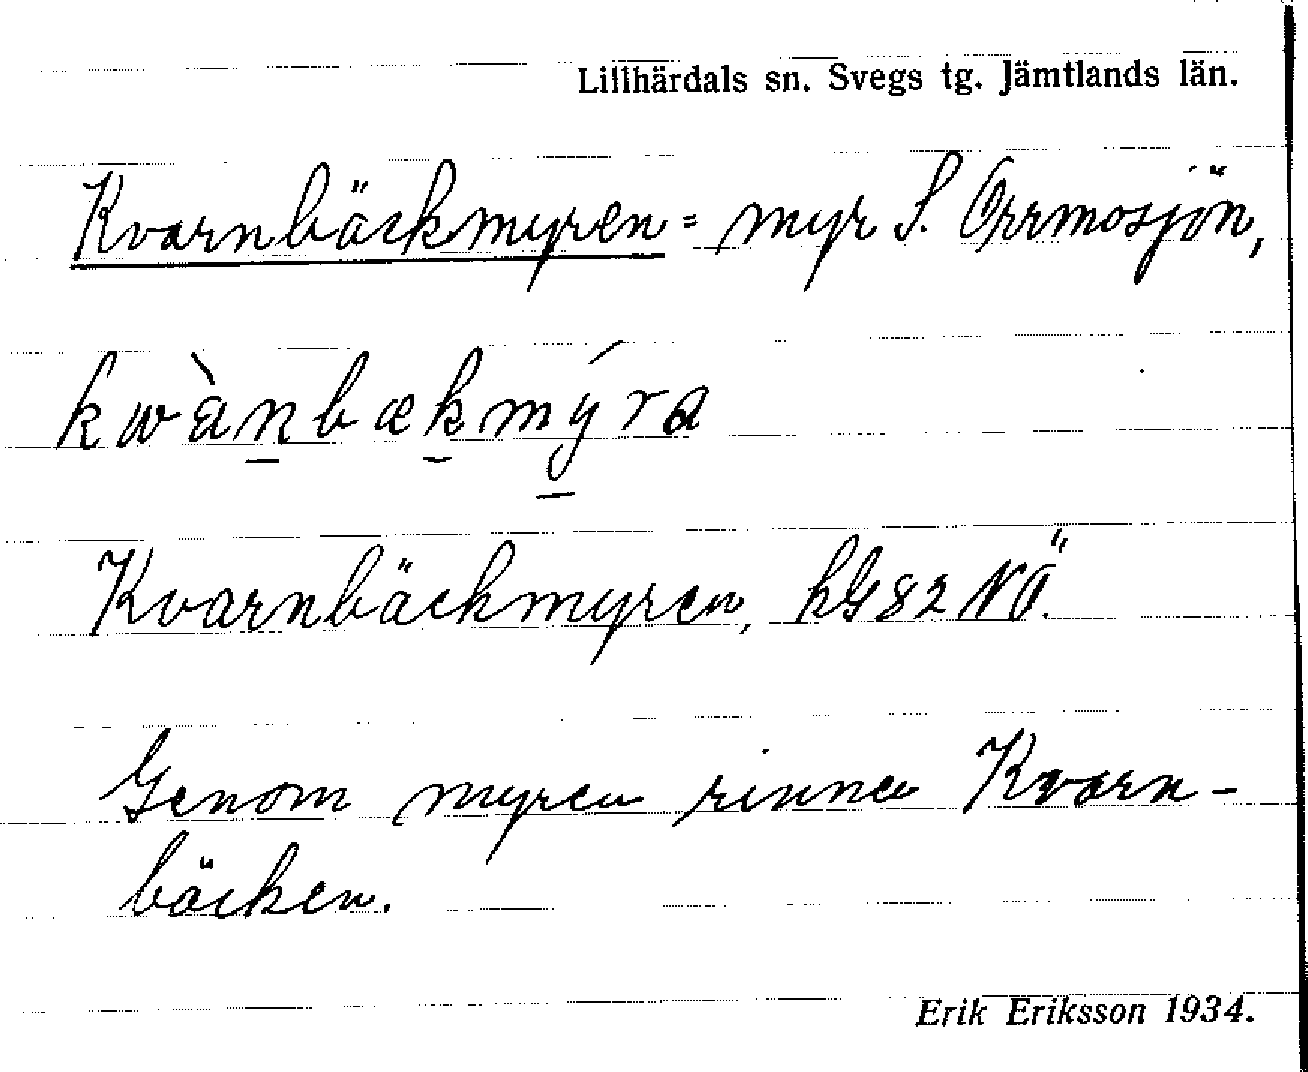 Lillhärdals sn. Svegs tg. Jämtlands län.
Kvarnbäckmyren = myr S. Orrmosjön,
kwànbækmýra
Kvarnbäckmyren, hG82 NÖ.
Genom myren rinner Kvarn-
bäcken.
Erik Eriksson 1934.